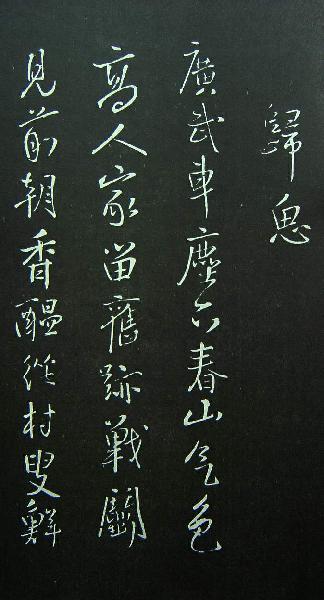 歸思
廣武車塵下春山气色
高人家留舊跡戰鬭
見前朝香醞從村叟鮮